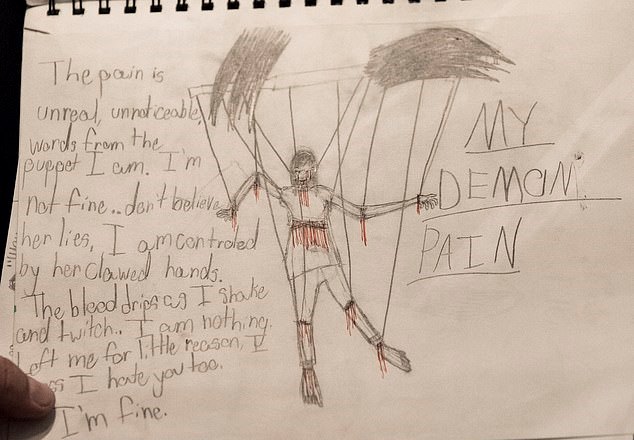 The pain is
unreal, unnoticeable,
words from the
puppet I am. I'm
not fine.. don't believe
her lies, I am controled
by her clawed hands.
The blood drips as I shake
and twitch.. I am nothing.
left me for little reason, I
I hate you too.
I'm fine.
MY
DEMON
PAIN